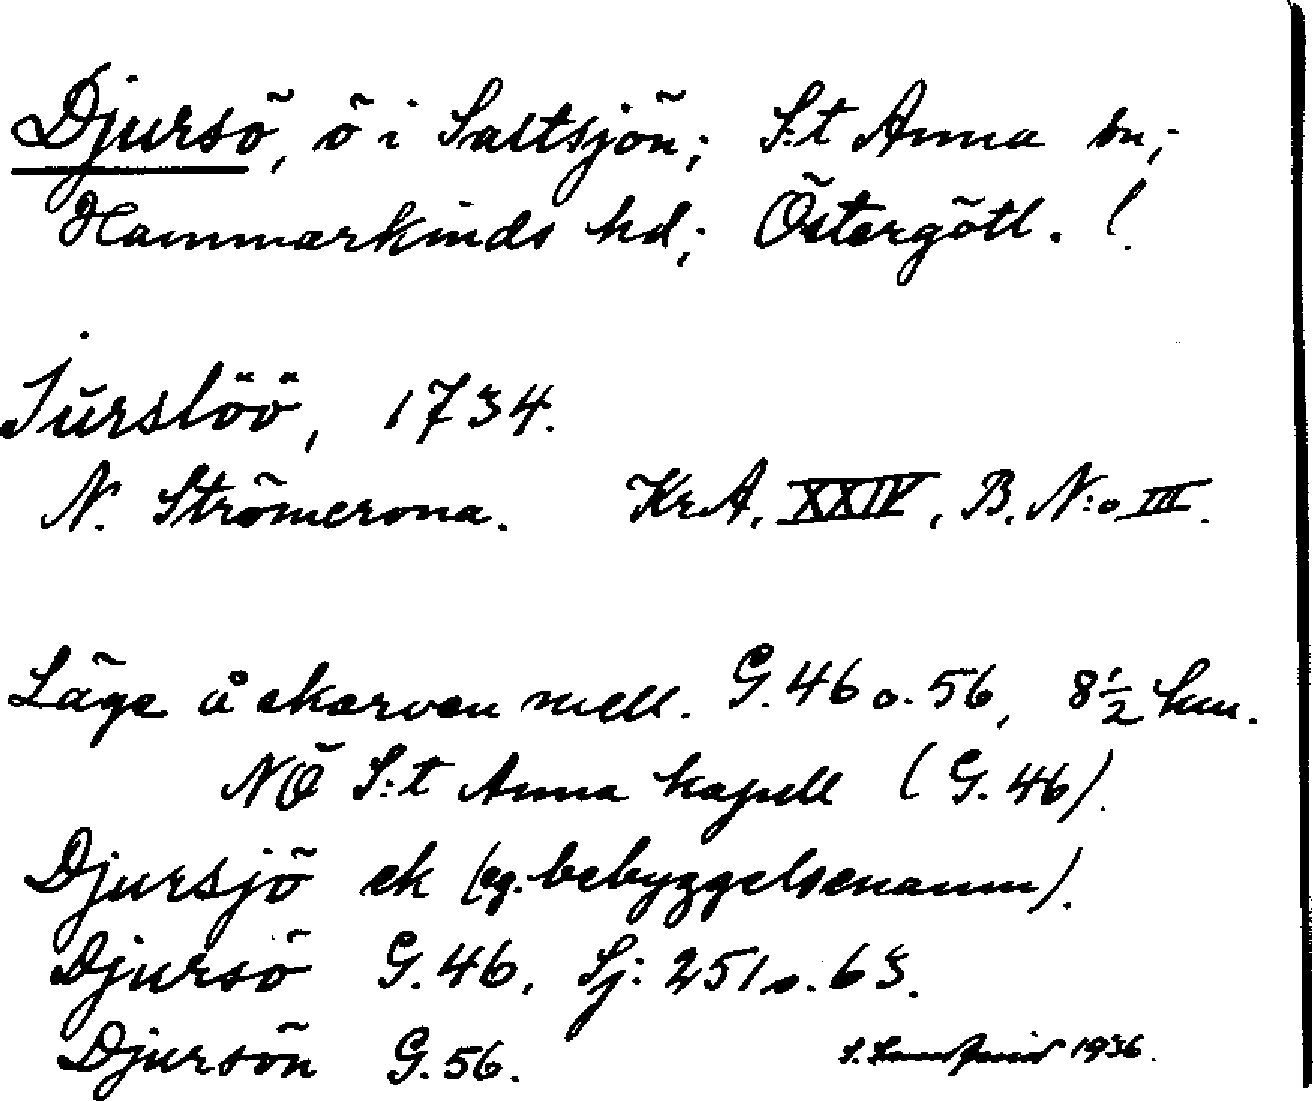 Djursö, ö i Saltsjön; S:t Anna sn;
Hammarkinds hd; Östergötl. !
Jurslöö, 1734.
N. Strömcrona. KrA. XXIV, B. N:o III.
Läge å skarven mell. G. 46 o. 56, 8½ km.
NÖ S:t Anna kapell (G. 46).
Djursjö ek (eg. bebyggelsenamn).
Djursö G. 46, Sj: 251 o. 63.
Djursön G. 56.
1936.